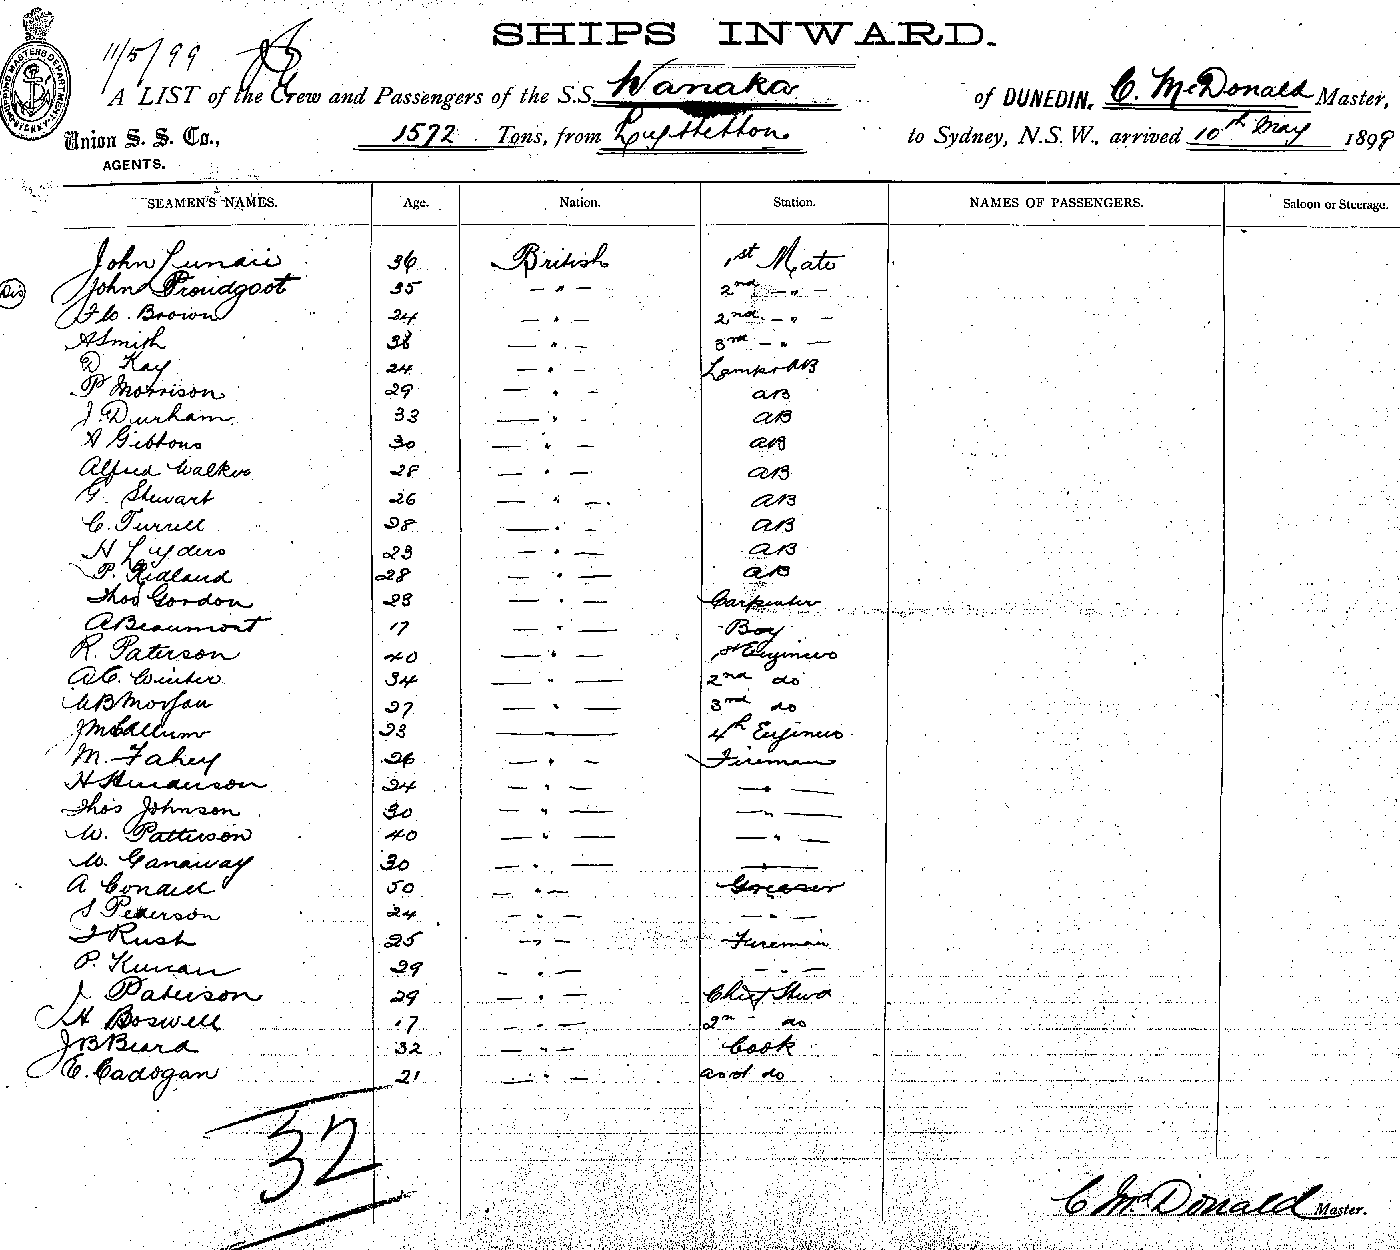 SHIPS INWARD.
11/5/99
A LIST of the Crew and Passengers of the S.S. Wanaka of DUNEDIN, C. McDonald Master,
Union S. S. Co., 1572 Tons, from Lyttelton to Sydney, N.S.W., arrived 10th May 1899
AGENTS.
SEAMEN'S NAMES. Age. Nation. Station. NAMES OF PASSENGERS. Saloon or Steerage.
John 36 British 1st Mate
Dis John Proudfoot 35 — " — 2nd — " —
Brown 24 — " — 2nd — " —
A Smith 38 — " — 3rd — " —
D Kay 24 — " — Lamps & AB
P Morrison 29 — " — AB
J. Durham 33 — " — AB
A Gibbons 30 — " — AB
Alfred Walker 28 — " — AB
G. Stewart 26 — " — AB
C. Turrell 28 — " — AB
H Lyders 23 — " — AB
P. Ridland 28 — " — AB
Thos Gordon 28 — " — Carpenter
A Beaumont 17 — " — Boy
R. Paterson 40 — " — 1st Engineer
A.C. Winter 34 — " — 2nd do
Morgan 27 — " — 3rd do
J McCallum 23 ——— 4th Engineer
M. Fahey 26 — " — Fireman
H Henderson 24 — " — — " —
Thos Johnson 30 — " — — " —
W. Patterson 40 — " — — " —
W. Ganaway 30 — " — — " —
A 50 — " — Greaser
S Pederson 24 — " — — " —
J Rush 25 — " — Fireman
P. 29 — " — — " —
J Paterson 29 — " — Chief Stwd
H Boswell 17 — " — 2n do
J B Beard 32 — " — Cook
E. Cadogan 21 — " — asst do
32
C McDonald Master.